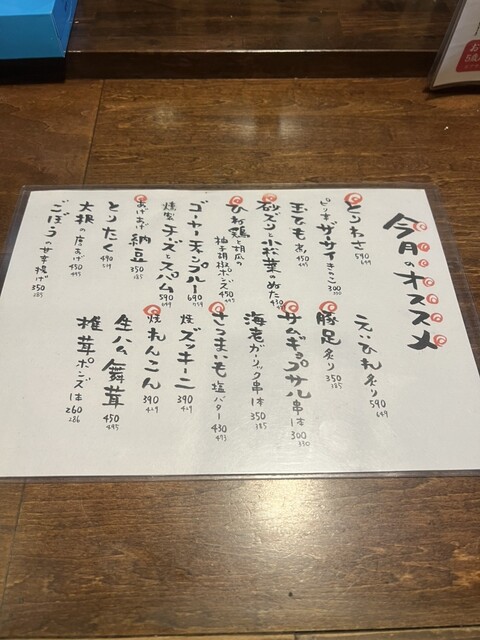 今月のオススメ
とりわさ 590 649
ピリ辛ザーサイきのこ 300 330
玉ひもあ 450 495
砂ズリと小松菜のぬた 430
ひね鶏と胡瓜の
柚子胡椒ポンズ 450 495
ゴーヤーチャンプルー 690 759
燻製チーズとスパム 590 649
あげあげ納豆 350 385
とりたく 490 539
大根の唐あげ 450 495
ごぼうの甘辛揚げ 350 385
えいひれ炙り 590 649
豚足炙り 350 385
サムギョプサル串1本 300 330
海老ガーリック串1本 350 385
さつまいも塩バター 430 473
焼ズッキーニ 390 429
焼れんこん 390 429
生ハム舞茸 450 495
椎茸ポンズ1本 260 286